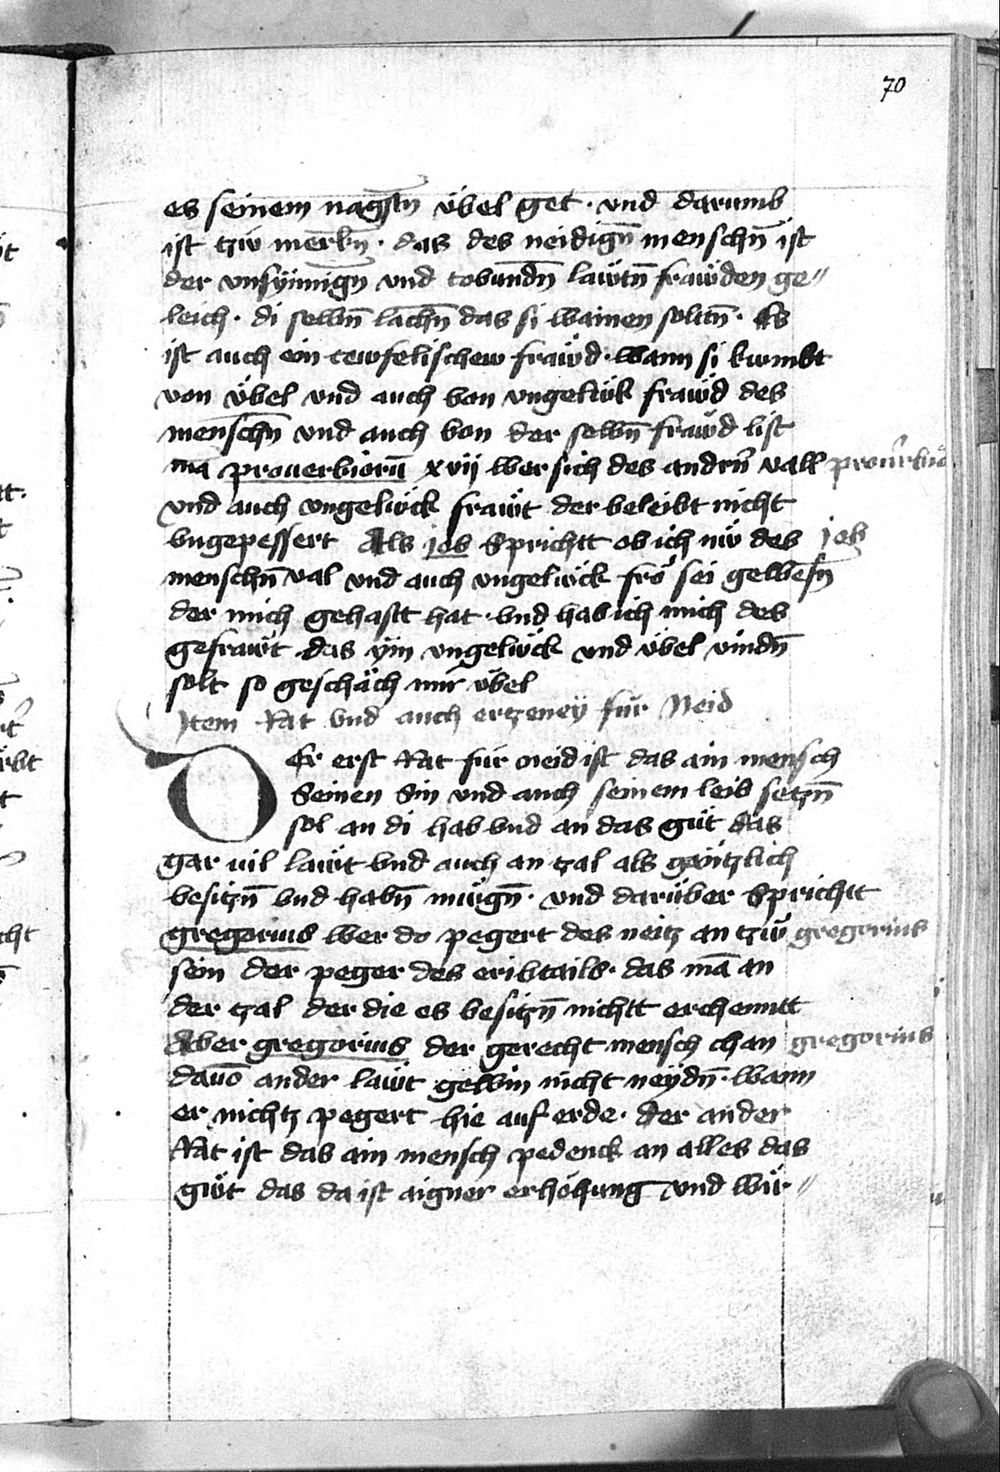 70
es seinem nagstn̄ übel get · vnd darumb
ist tzw̋ merkn̄ · das des neidign̄ menschn̄ ist
der vnsyinnign̄ vnd tobundn̄ law̋tn̄ fraw̋den ge〃
leich · di selbn̄ lachn̄ das si wainen soltn̄ · Es
ist auch ein tewfelischew fraw̋d · wann si kumbt
von übel vnd auch von vngelük fraw̋d des
menschn̄ vnd auch von der selbn̄ fraw̋d list
mā prouerbiorū xvij wer sich des andrn̄ vall
und auch vngelw̋ck fraw̋t der beleibt nicht
vngepessert Als job Sprichtt ob ich nw̋ des job
menschn̄ val vnd auch vngelw̋ck frö sei gewesn̄
der mich gehastt hat · vnd hab ich mich des
gefraw̋t das ym vngelw̋ck vnd übel vindn̄
solt so geschäch mir übel
Item Rat vnd auch ertzeney für Neid
DEr erst Rat für neid ist das ain mensch
Seinen Sin vnd auch seinem leib setzn̄
sol an di hab vnd an das gůt das
gar vil law̋t vnd auch an tzal als gäntzlich
besitzn̄ vnd habn̄ mügn̄ · vnd darüber Sprichtt
gregorius wer do pegert des neitz an tzw̋ gregorius
sein der peger des eribtails · das mā an
der tzal der die es besitzn̄ nichtt erchenntt
Aber gregorius der gerecht mensch chan gregorius
dauō ander law̋t gewin nicht neydn̄ · wann
er nichtz pegert hie auf erde · der ander
Rat ist das ain mensch pedenck an alles das
gůt das da ist aigner erhöhung vnd wir〃